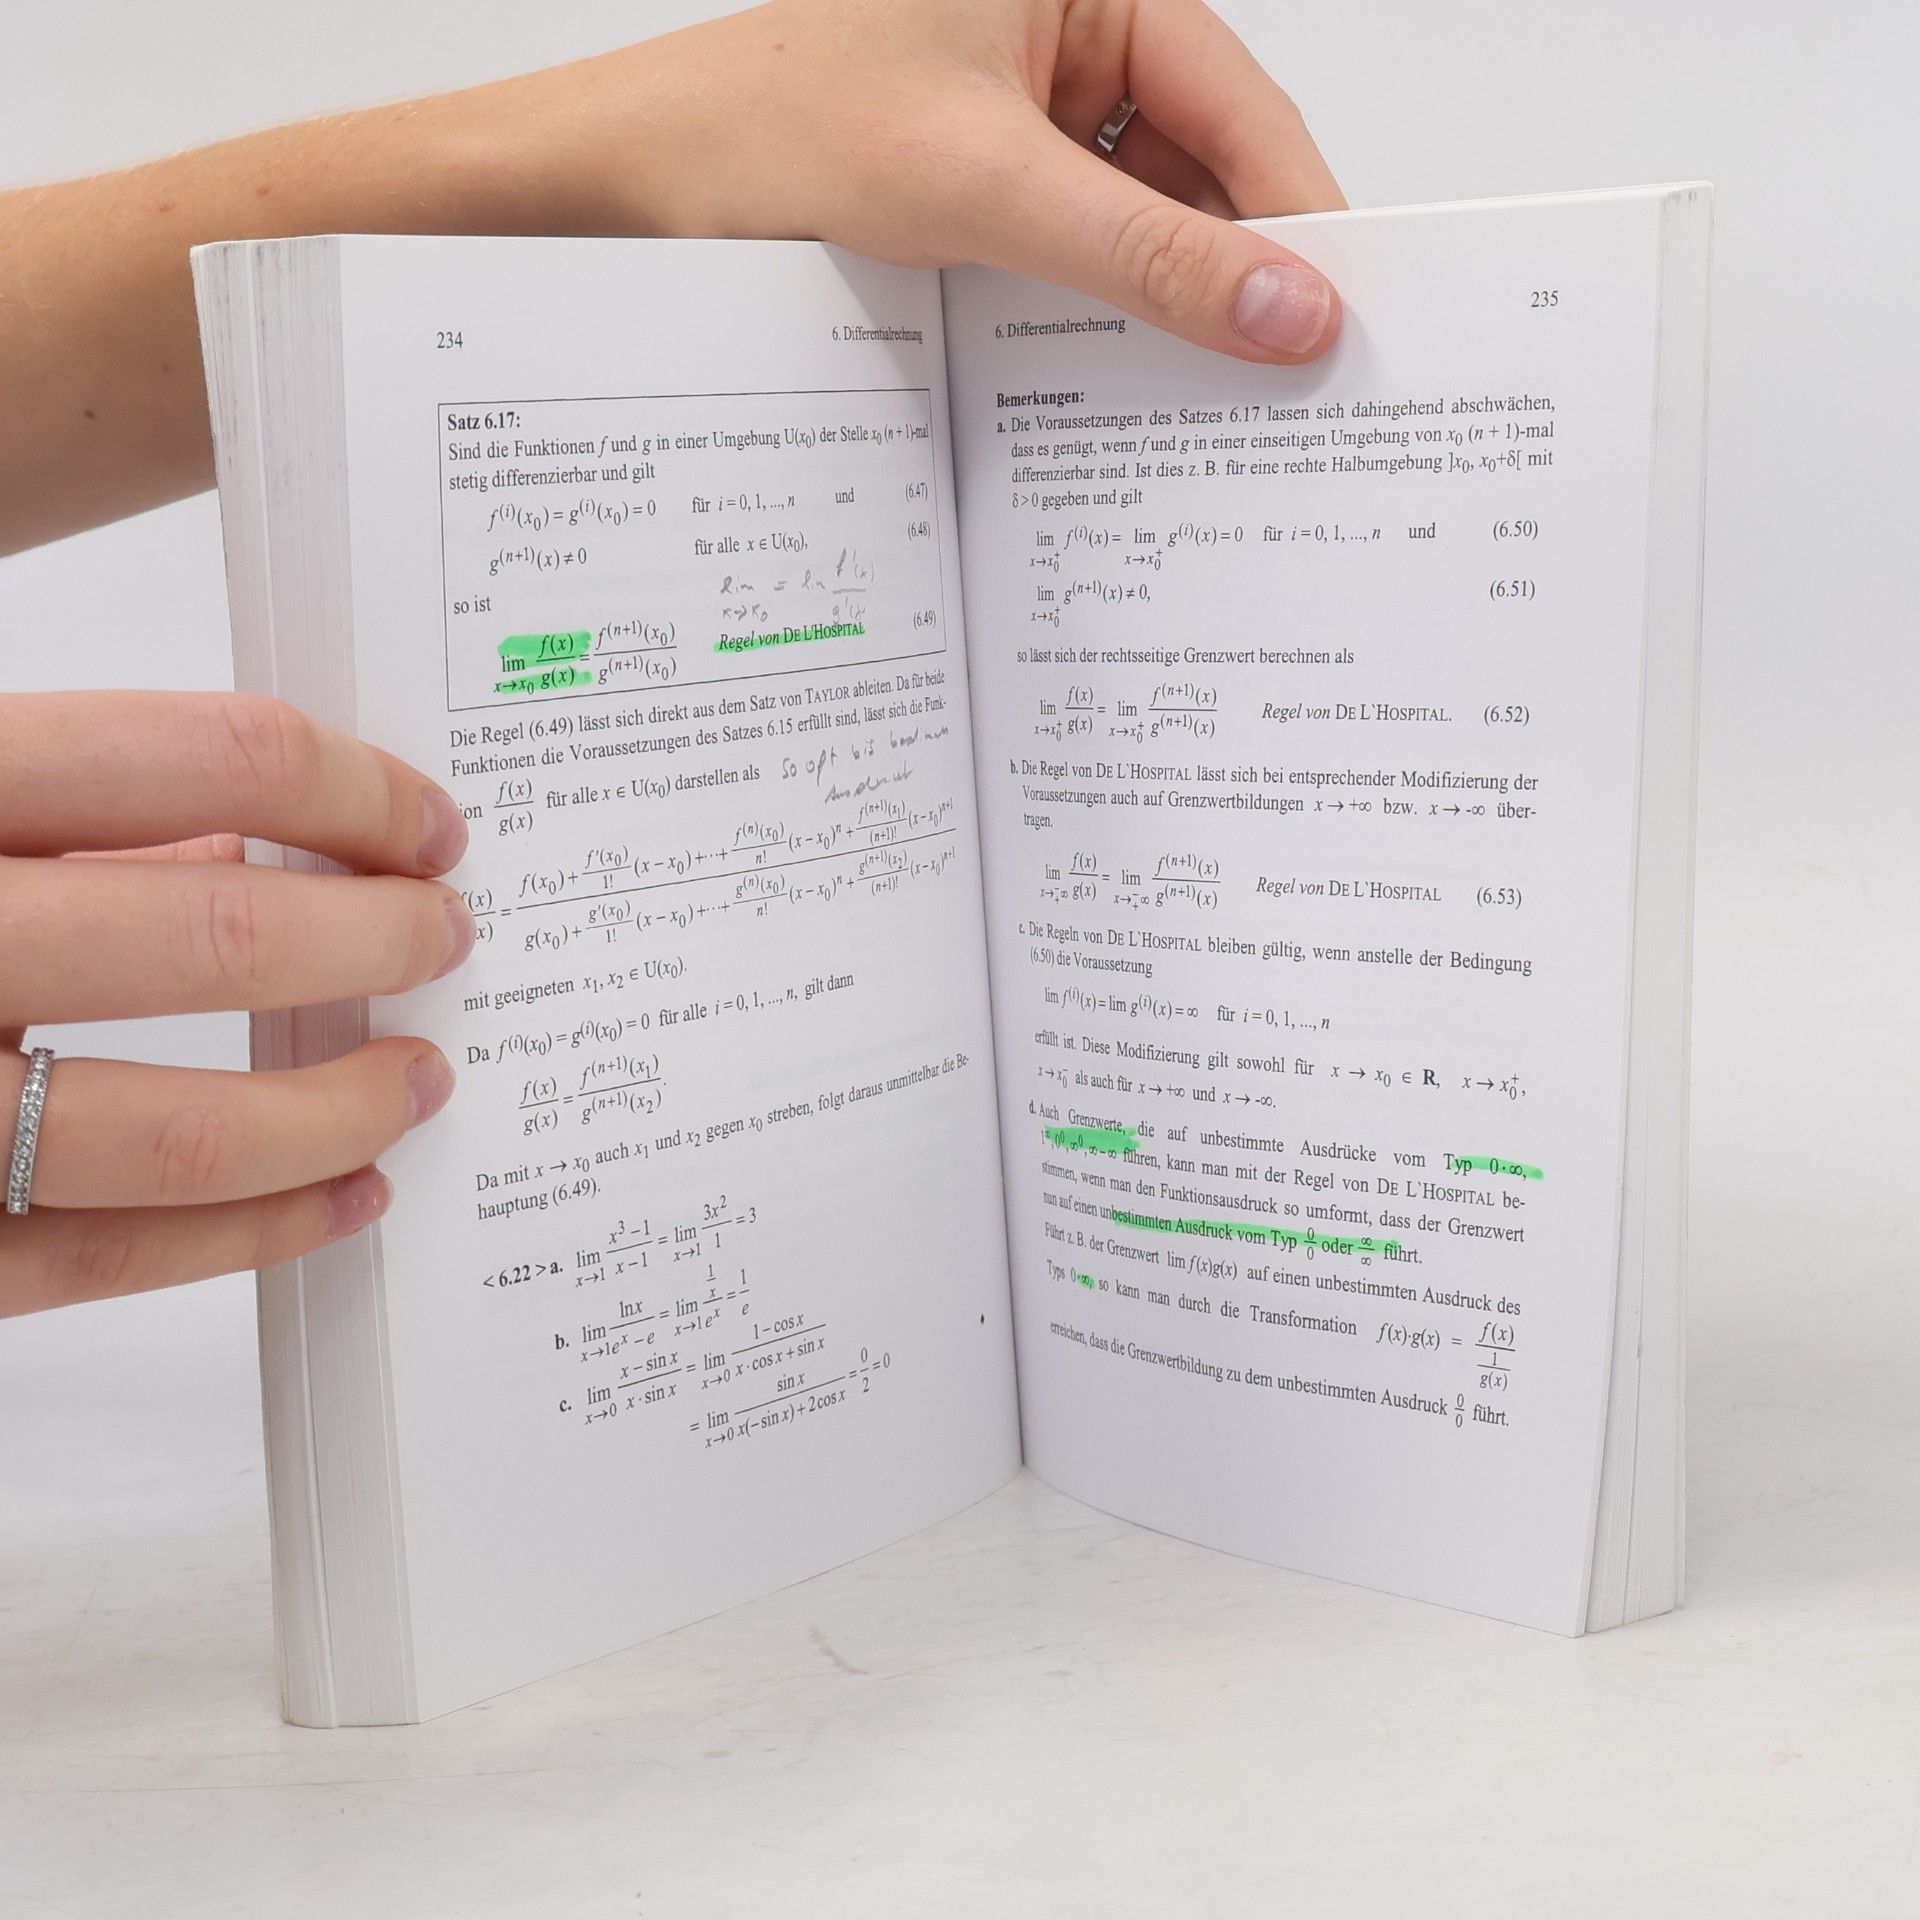 234
6. Differentialrechnung
Satz 6.17:
Sind die Funktionen f und g in einer Umgebung U(x₀) der Stelle x₀ (n + 1)-mal
stetig differenzierbar und gilt
f⁽ⁱ⁾(x₀) = g⁽ⁱ⁾(x₀) = 0 für i = 0, 1, ..., n und (6.47)
g⁽ⁿ⁺¹⁾(x) ≠ 0 für alle x ∈ U(x₀), (6.48)
lim x→x₀ = lim f'(x) / g'(x)
so ist
lim x→x₀ f(x)/g(x) = f⁽ⁿ⁺¹⁾(x₀)/g⁽ⁿ⁺¹⁾(x₀) Regel von DE L'HOSPITAL (6.49)
Die Regel (6.49) lässt sich direkt aus dem Satz von TAYLOR ableiten. Da für beide
Funktionen die Voraussetzungen des Satzes 6.15 erfüllt sind, lässt sich die Funk-
ion f(x)/g(x) für alle x ∈ U(x₀) darstellen als
so oft bis
f(x)/g(x) = [f(x₀) + f'(x₀)/1! (x − x₀) + ··· + f⁽ⁿ⁾(x₀)/n! (x − x₀)ⁿ + f⁽ⁿ⁺¹⁾(x₁)/(n+1)! (x − x₀)ⁿ⁺¹] / [g(x₀) + g'(x₀)/1! (x − x₀) + ··· + g⁽ⁿ⁾(x₀)/n! (x − x₀)ⁿ + g⁽ⁿ⁺¹⁾(x₂)/(n+1)! (x − x₀)ⁿ⁺¹]
mit geeigneten x₁, x₂ ∈ U(x₀).
Da f⁽ⁱ⁾(x₀) = g⁽ⁱ⁾(x₀) = 0 für alle i = 0, 1, ..., n, gilt dann
f(x)/g(x) = f⁽ⁿ⁺¹⁾(x₁)/g⁽ⁿ⁺¹⁾(x₂).
Da mit x → x₀ auch x₁ und x₂ gegen x₀ streben, folgt daraus unmittelbar die Be-
hauptung (6.49).
< 6.22 > a. lim x→1 (x³ − 1)/(x − 1) = lim x→1 3x²/1 = 3
b. lim x→1 lnx/(eˣ − e) = lim x→1 (1/x)/eˣ = 1/e
c. lim x→0 (x − sin x)/(x · sin x) = lim x→0 (1 − cos x)/(x · cos x + sin x)
= lim x→0 sin x/(x(−sin x) + 2cos x) = 0/2 = 0
6. Differentialrechnung
235
Bemerkungen:
a. Die Voraussetzungen des Satzes 6.17 lassen sich dahingehend abschwächen,
dass es genügt, wenn f und g in einer einseitigen Umgebung von x₀ (n + 1)-mal
differenzierbar sind. Ist dies z. B. für eine rechte Halbumgebung ]x₀, x₀+δ[ mit
δ > 0 gegeben und gilt
lim x→x₀⁺ f⁽ⁱ⁾(x) = lim x→x₀⁺ g⁽ⁱ⁾(x) = 0 für i = 0, 1, ..., n und (6.50)
lim x→x₀⁺ g⁽ⁿ⁺¹⁾(x) ≠ 0, (6.51)
so lässt sich der rechtsseitige Grenzwert berechnen als
lim x→x₀⁺ f(x)/g(x) = lim x→x₀⁺ f⁽ⁿ⁺¹⁾(x)/g⁽ⁿ⁺¹⁾(x) Regel von DE L`HOSPITAL. (6.52)
b. Die Regel von DE L`HOSPITAL lässt sich bei entsprechender Modifizierung der
Voraussetzungen auch auf Grenzwertbildungen x → +∞ bzw. x → -∞ über-
tragen.
lim x→∓∞ f(x)/g(x) = lim x→∓∞ f⁽ⁿ⁺¹⁾(x)/g⁽ⁿ⁺¹⁾(x) Regel von DE L`HOSPITAL (6.53)
c. Die Regeln von DE L`HOSPITAL bleiben gültig, wenn anstelle der Bedingung
(6.50) die Voraussetzung
lim f⁽ⁱ⁾(x) = lim g⁽ⁱ⁾(x) = ∞ für i = 0, 1, ..., n
erfüllt ist. Diese Modifizierung gilt sowohl für x → x₀ ∈ R, x → x₀⁺,
x → x₀⁻ als auch für x → +∞ und x → -∞.
d. Auch Grenzwerte, die auf unbestimmte Ausdrücke vom Typ 0·∞,
1^∞, 0⁰, ∞⁰, ∞ − ∞ führen, kann man mit der Regel von DE L`HOSPITAL be-
stimmen, wenn man den Funktionsausdruck so umformt, dass der Grenzwert
nun auf einen unbestimmten Ausdruck vom Typ 0/0 oder ∞/∞ führt.
Führt z. B. der Grenzwert lim f(x)g(x) auf einen unbestimmten Ausdruck des
Typs 0·∞, so kann man durch die Transformation f(x)·g(x) = f(x)/(1/g(x))
erreichen, dass die Grenzwertbildung zu dem unbestimmten Ausdruck 0/0 führt.